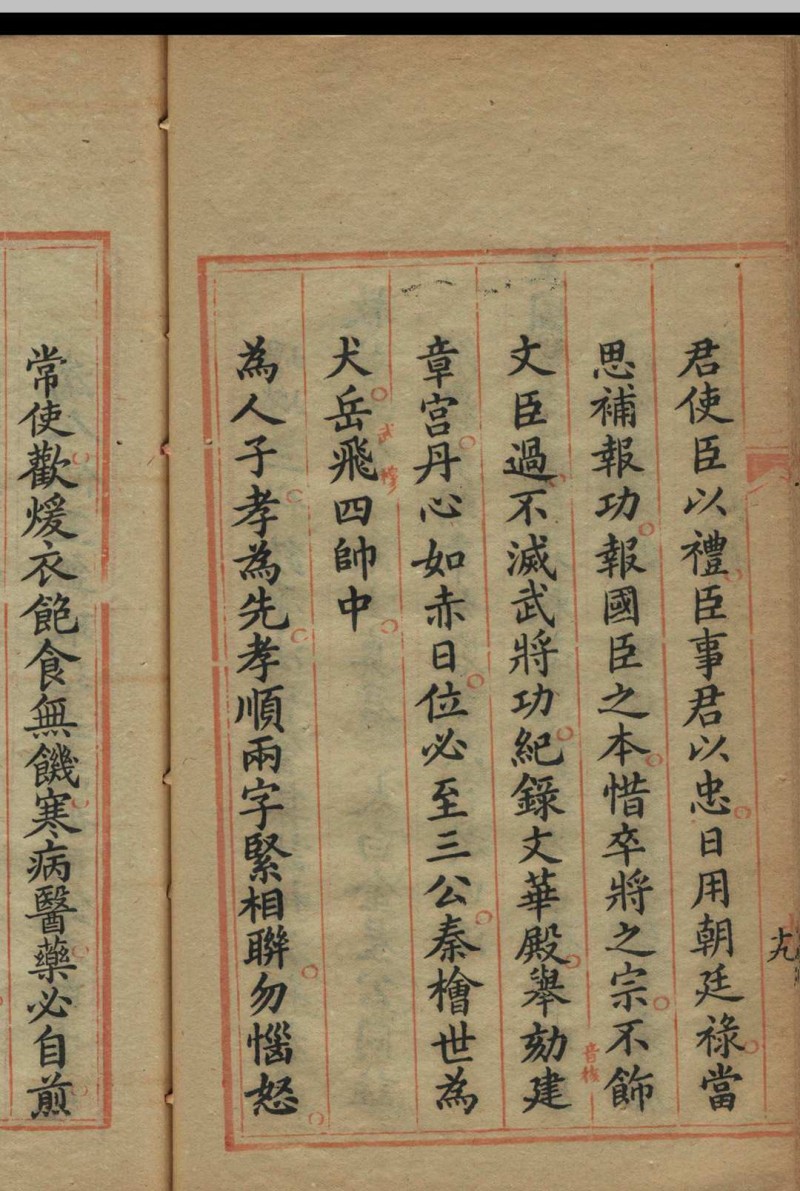 君使臣以禮臣事君以忠日用朝廷祿當
思補報功報國臣之本惜卒將之宗不飾
文臣過不滅武將功紀錄文華殿舉劾建
音核
章宮丹心如赤日位必至三公秦檜世為
犬岳飛四帥中
為人子孝為先孝順兩字緊相聯勿惱怒
常使歡煖衣飽食無饑寒病醫藥必自煎